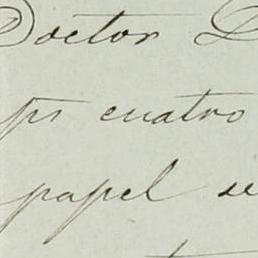 Doctor
ps cuatro
papel se